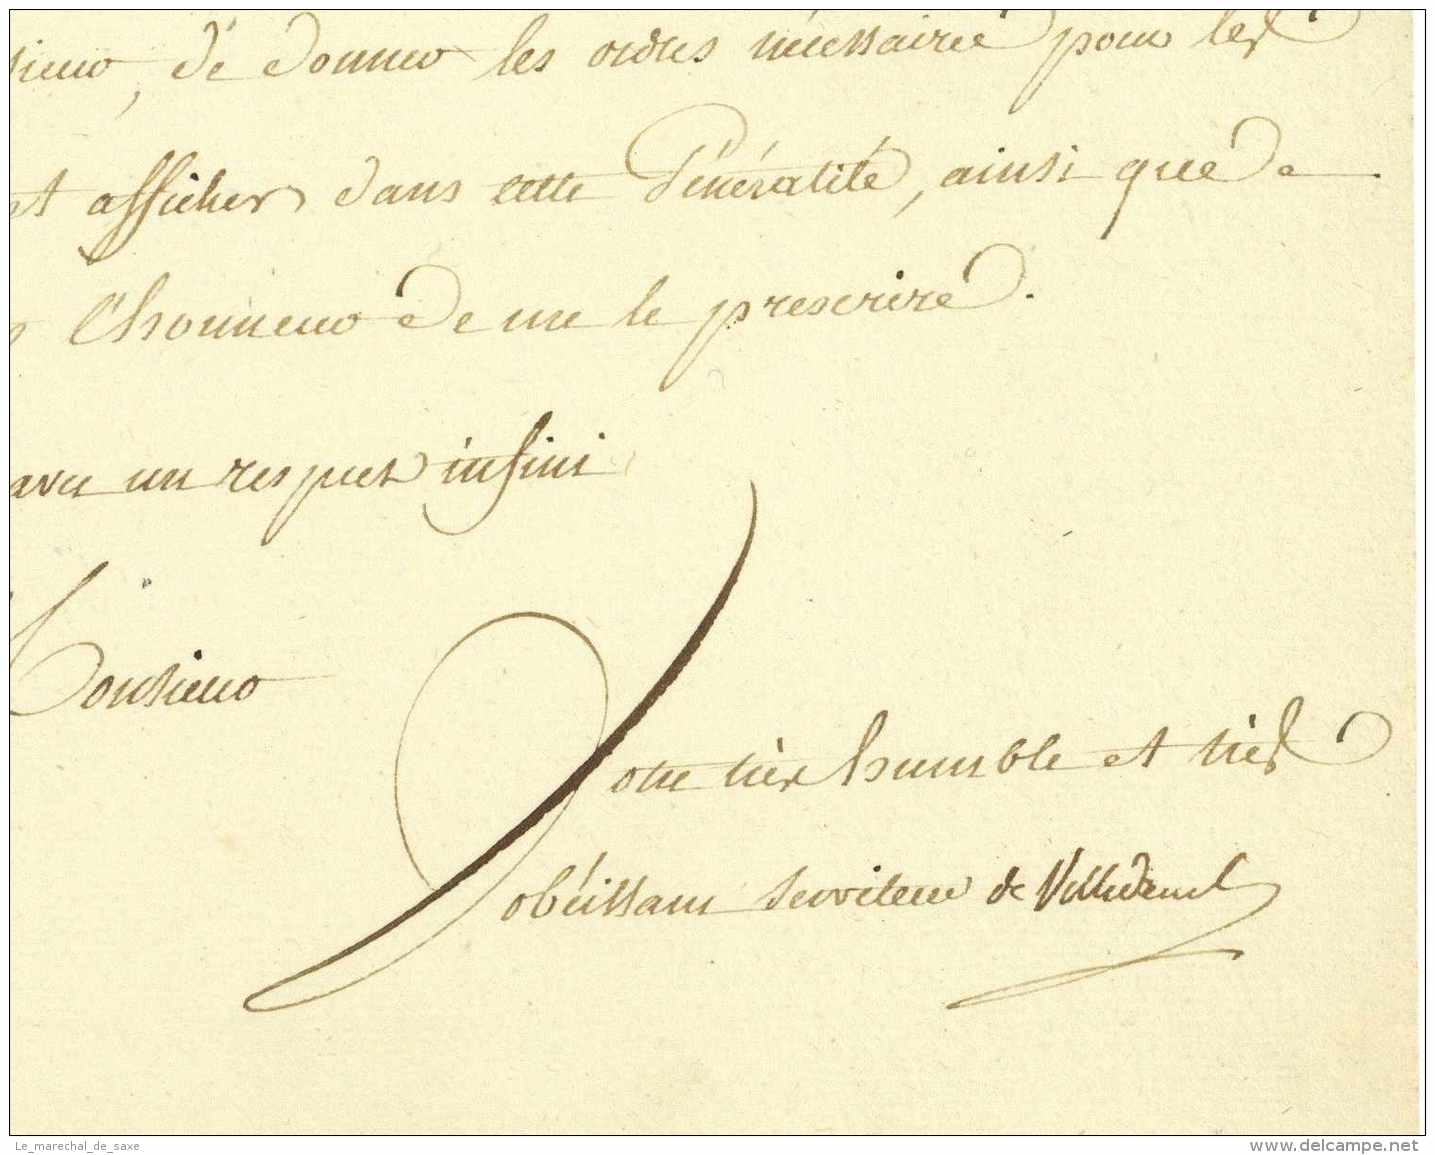 sieur, de donner les ordres nécessaire pour les
et afficher dans cette Généralité, ainsi que de
l'honneur de me le prescrire.
avec un respect infini
Monsieur
Votre très humble et très
obéissant serviteur de Villedeuil
Le_marechal_de_saxe
www.delcampe.net